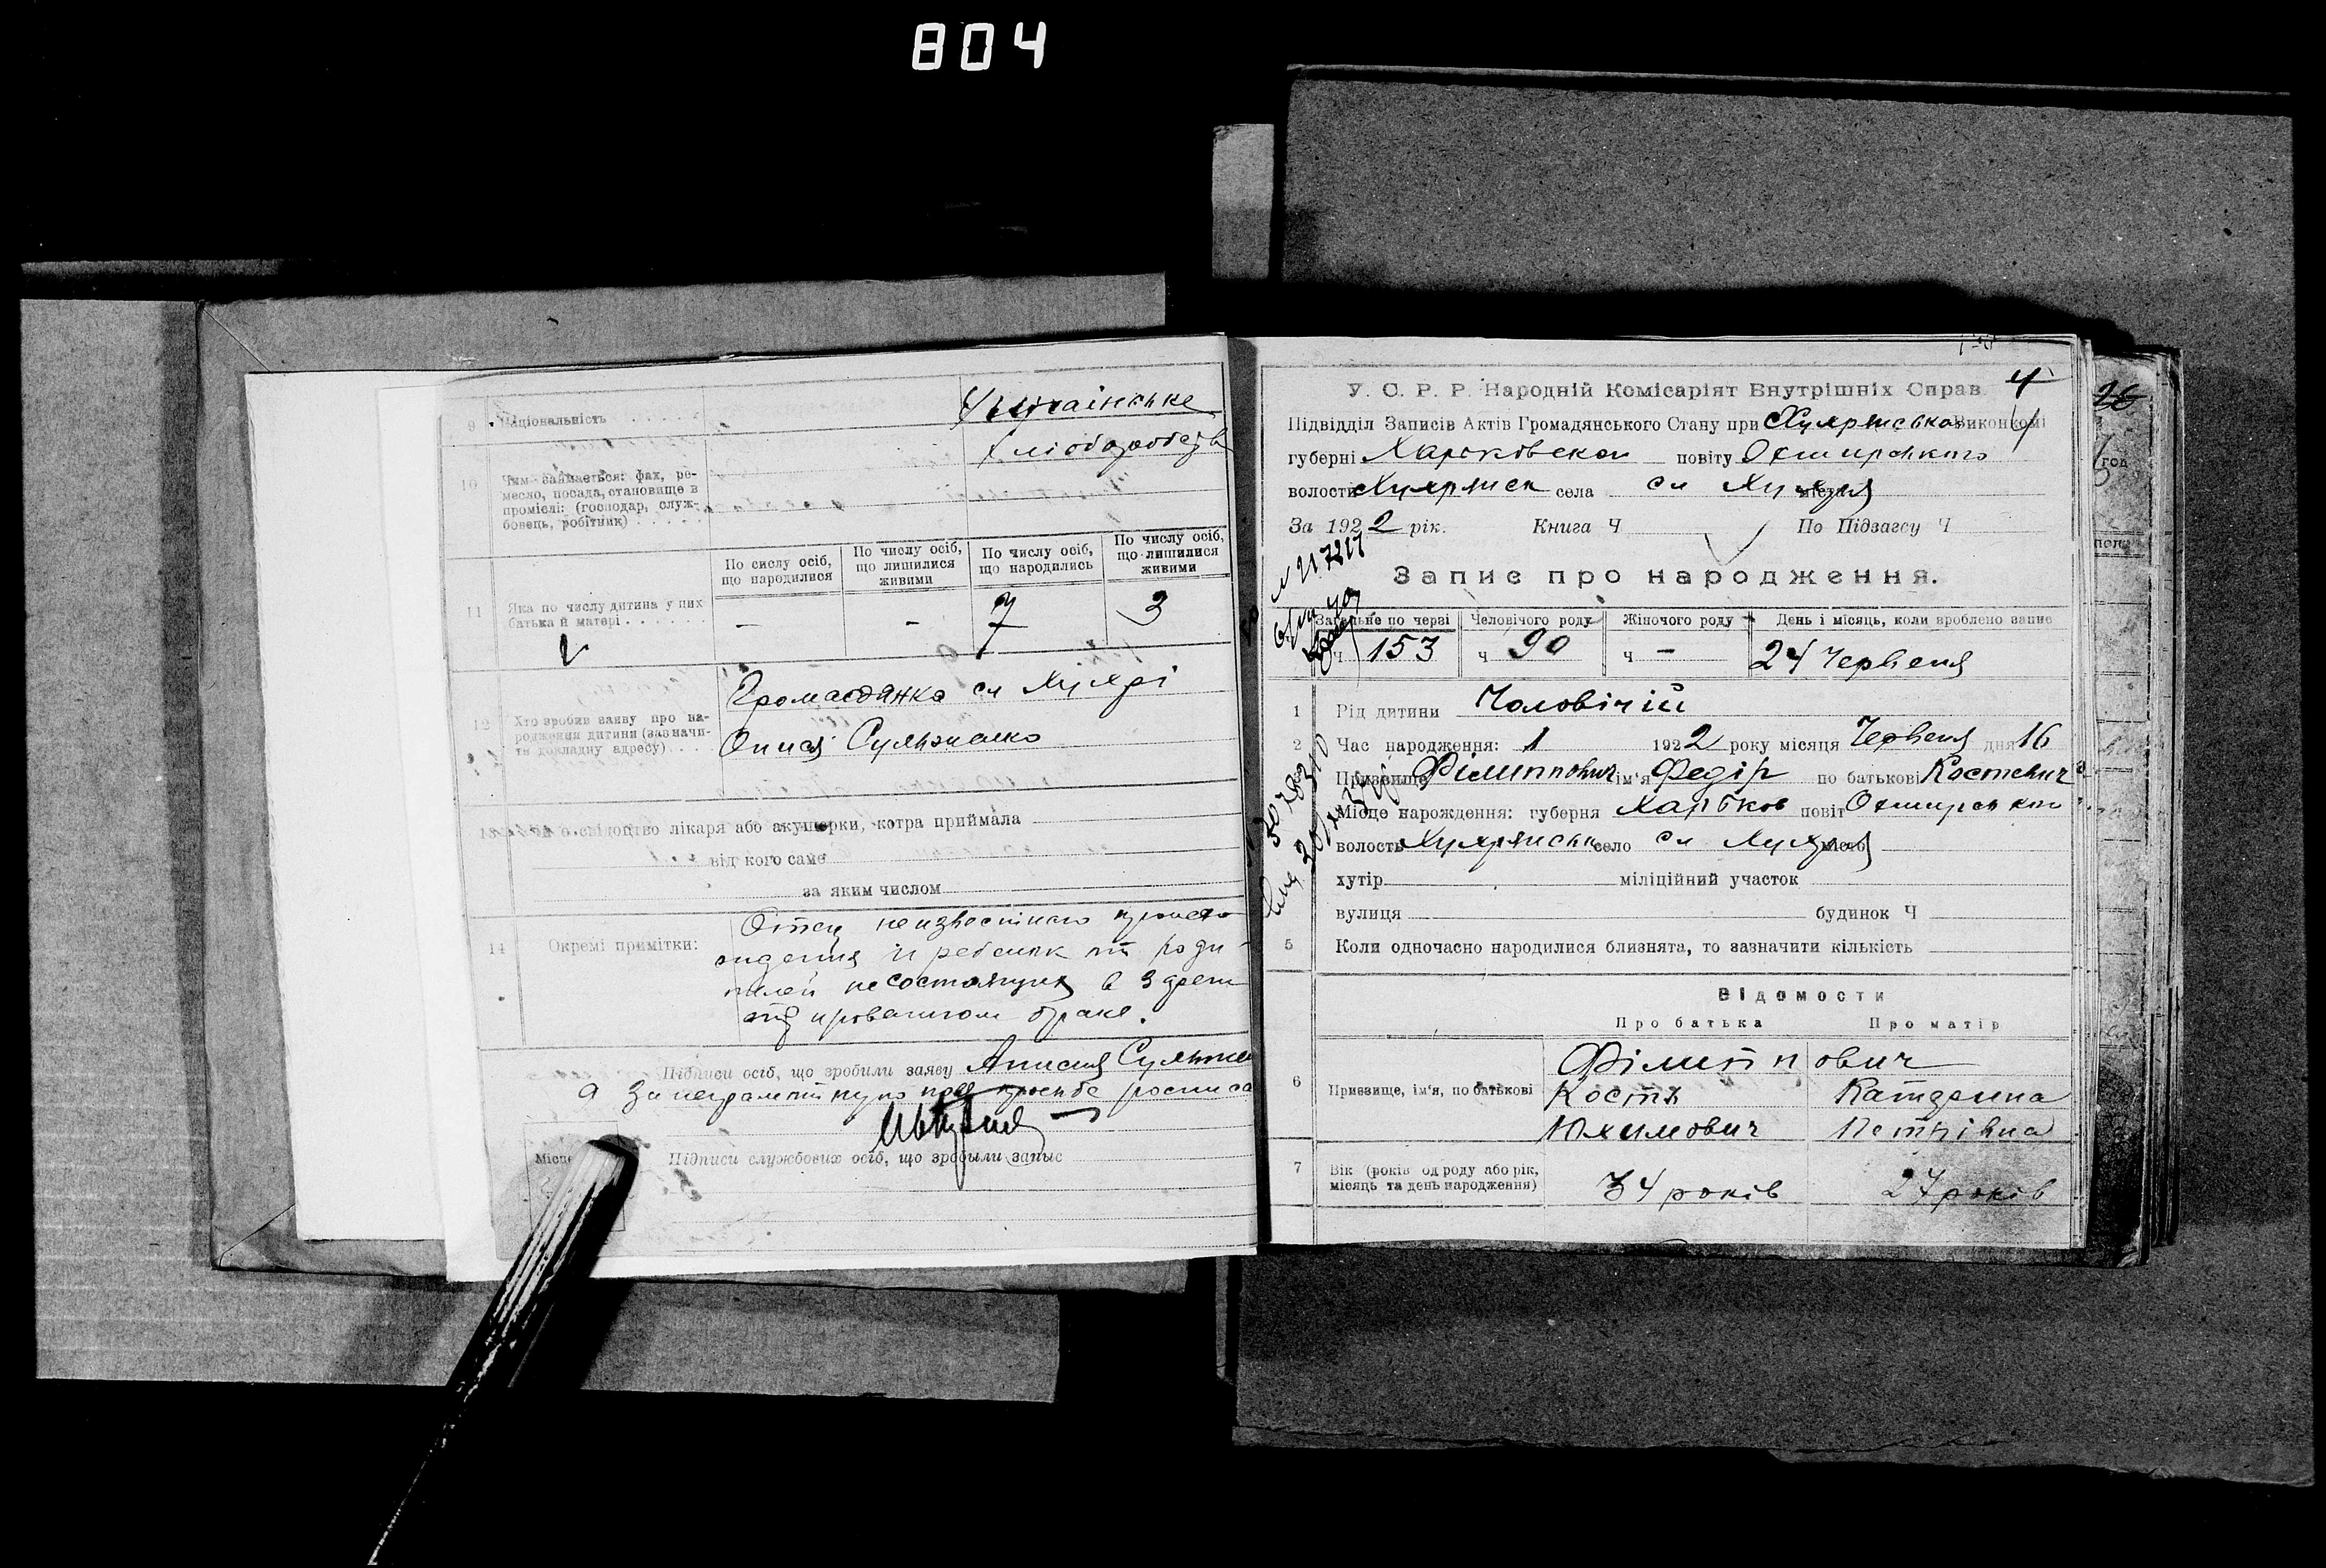 804
9 Національність Українське
хлібороб
10 Чим займається: фах, ре-
месло, посада, становище в
промислі: (господар, служ-
бовець, робітник)
По сислу осіб, що народилися
По числу осіб, що лишилися живими
По числу осіб, що народились
По числу осіб, що лишилися живими
11 Яка по числу дитина у цих
батька й матері
— — 7 3
12 Хто зробив заяву про на-
родження дитини (зазначи-
ти докладну адресу)
Громадянка сл Хухрі
Опися
13 свідоцтво лікаря або акушерки, котра приймала
від кого саме
за яким числом
14 Окремі примітки:
Отец неизвестного происхо
ждения и ребенок от роди-
телей не состоящих в
браке.
Підписи осіб, що зробили заяву Анисия
а за неграмотную просьбе росписа
Місце
Підписи службових осіб, що зробыли запыс
4
У. С. Р. Р. Народній Комісаріят Внутрішніх Справ
Підвідділ Записів Актів Громадянського Стану при Виконкомі
губерні Харківскои повіту Охтирського
волости Хухрянск села сл Хухря
За 1922 рік. Книга Ч По Підзагсу Ч
Запис про народження.
Загальне по черзі Человічого роду Жіночого роду День і місяць, коли зроблено запис
ч 153 ч 90 ч — 24 Червеня
1 Рід дитини Чоловічій
2 Час народження: 1 1922 року місяця Червеня дня 16
Призвище Філиппович ім'я Федір по батькові Костевич
Місце нарождення: губерня Харьков повіт Охтирськи
волость село сл Хухря
хутір міліційний участок
вулиця будинок Ч
5 Коли одночасно народилися близнята, то зазначити кількість
Відомости
Про батька Про матір
Філипп ович
6 Призвище, ім'я, по батькові Кость Катерина
Юхимович Петрівна
7 Вік (років од роду або рік,
місяць та день народження) 34 років 27 років